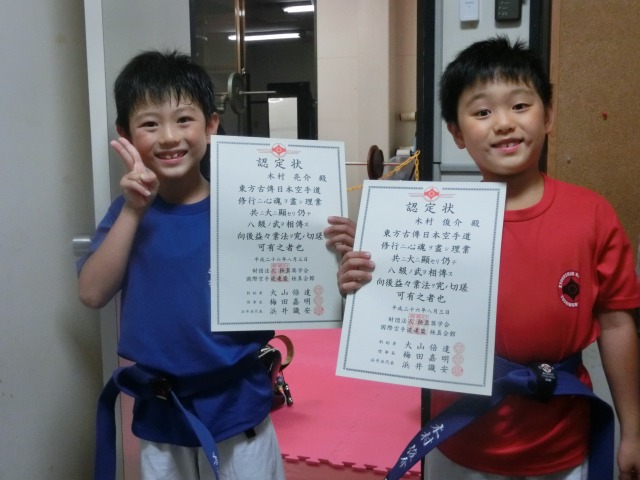 認定状
木村 亮介 殿
東方古傳日本空手道
修行ニ心魂ヲ盡シ理業
共ニ大ニ顕セリ仍テ
八級ノ武ヲ相傳ス
向後益々業法ヲ完ノ切瑳
可有之者也
平成二十六年八月三日
国際空手道連盟 極真会館
大山倍達
梅田嘉明
浜井識安
認定状
木村 俊介 殿
東方古傳日本空手道
修行ニ心魂ヲ盡シ理業
共ニ大ニ顕セリ仍テ
八級ノ武ヲ相傳ス
向後益々業法ヲ完ノ切瑳
可有之者也
平成二十六年八月三日
国際空手道連盟 極真会館
大山倍達
梅田嘉明
浜井識安
木村